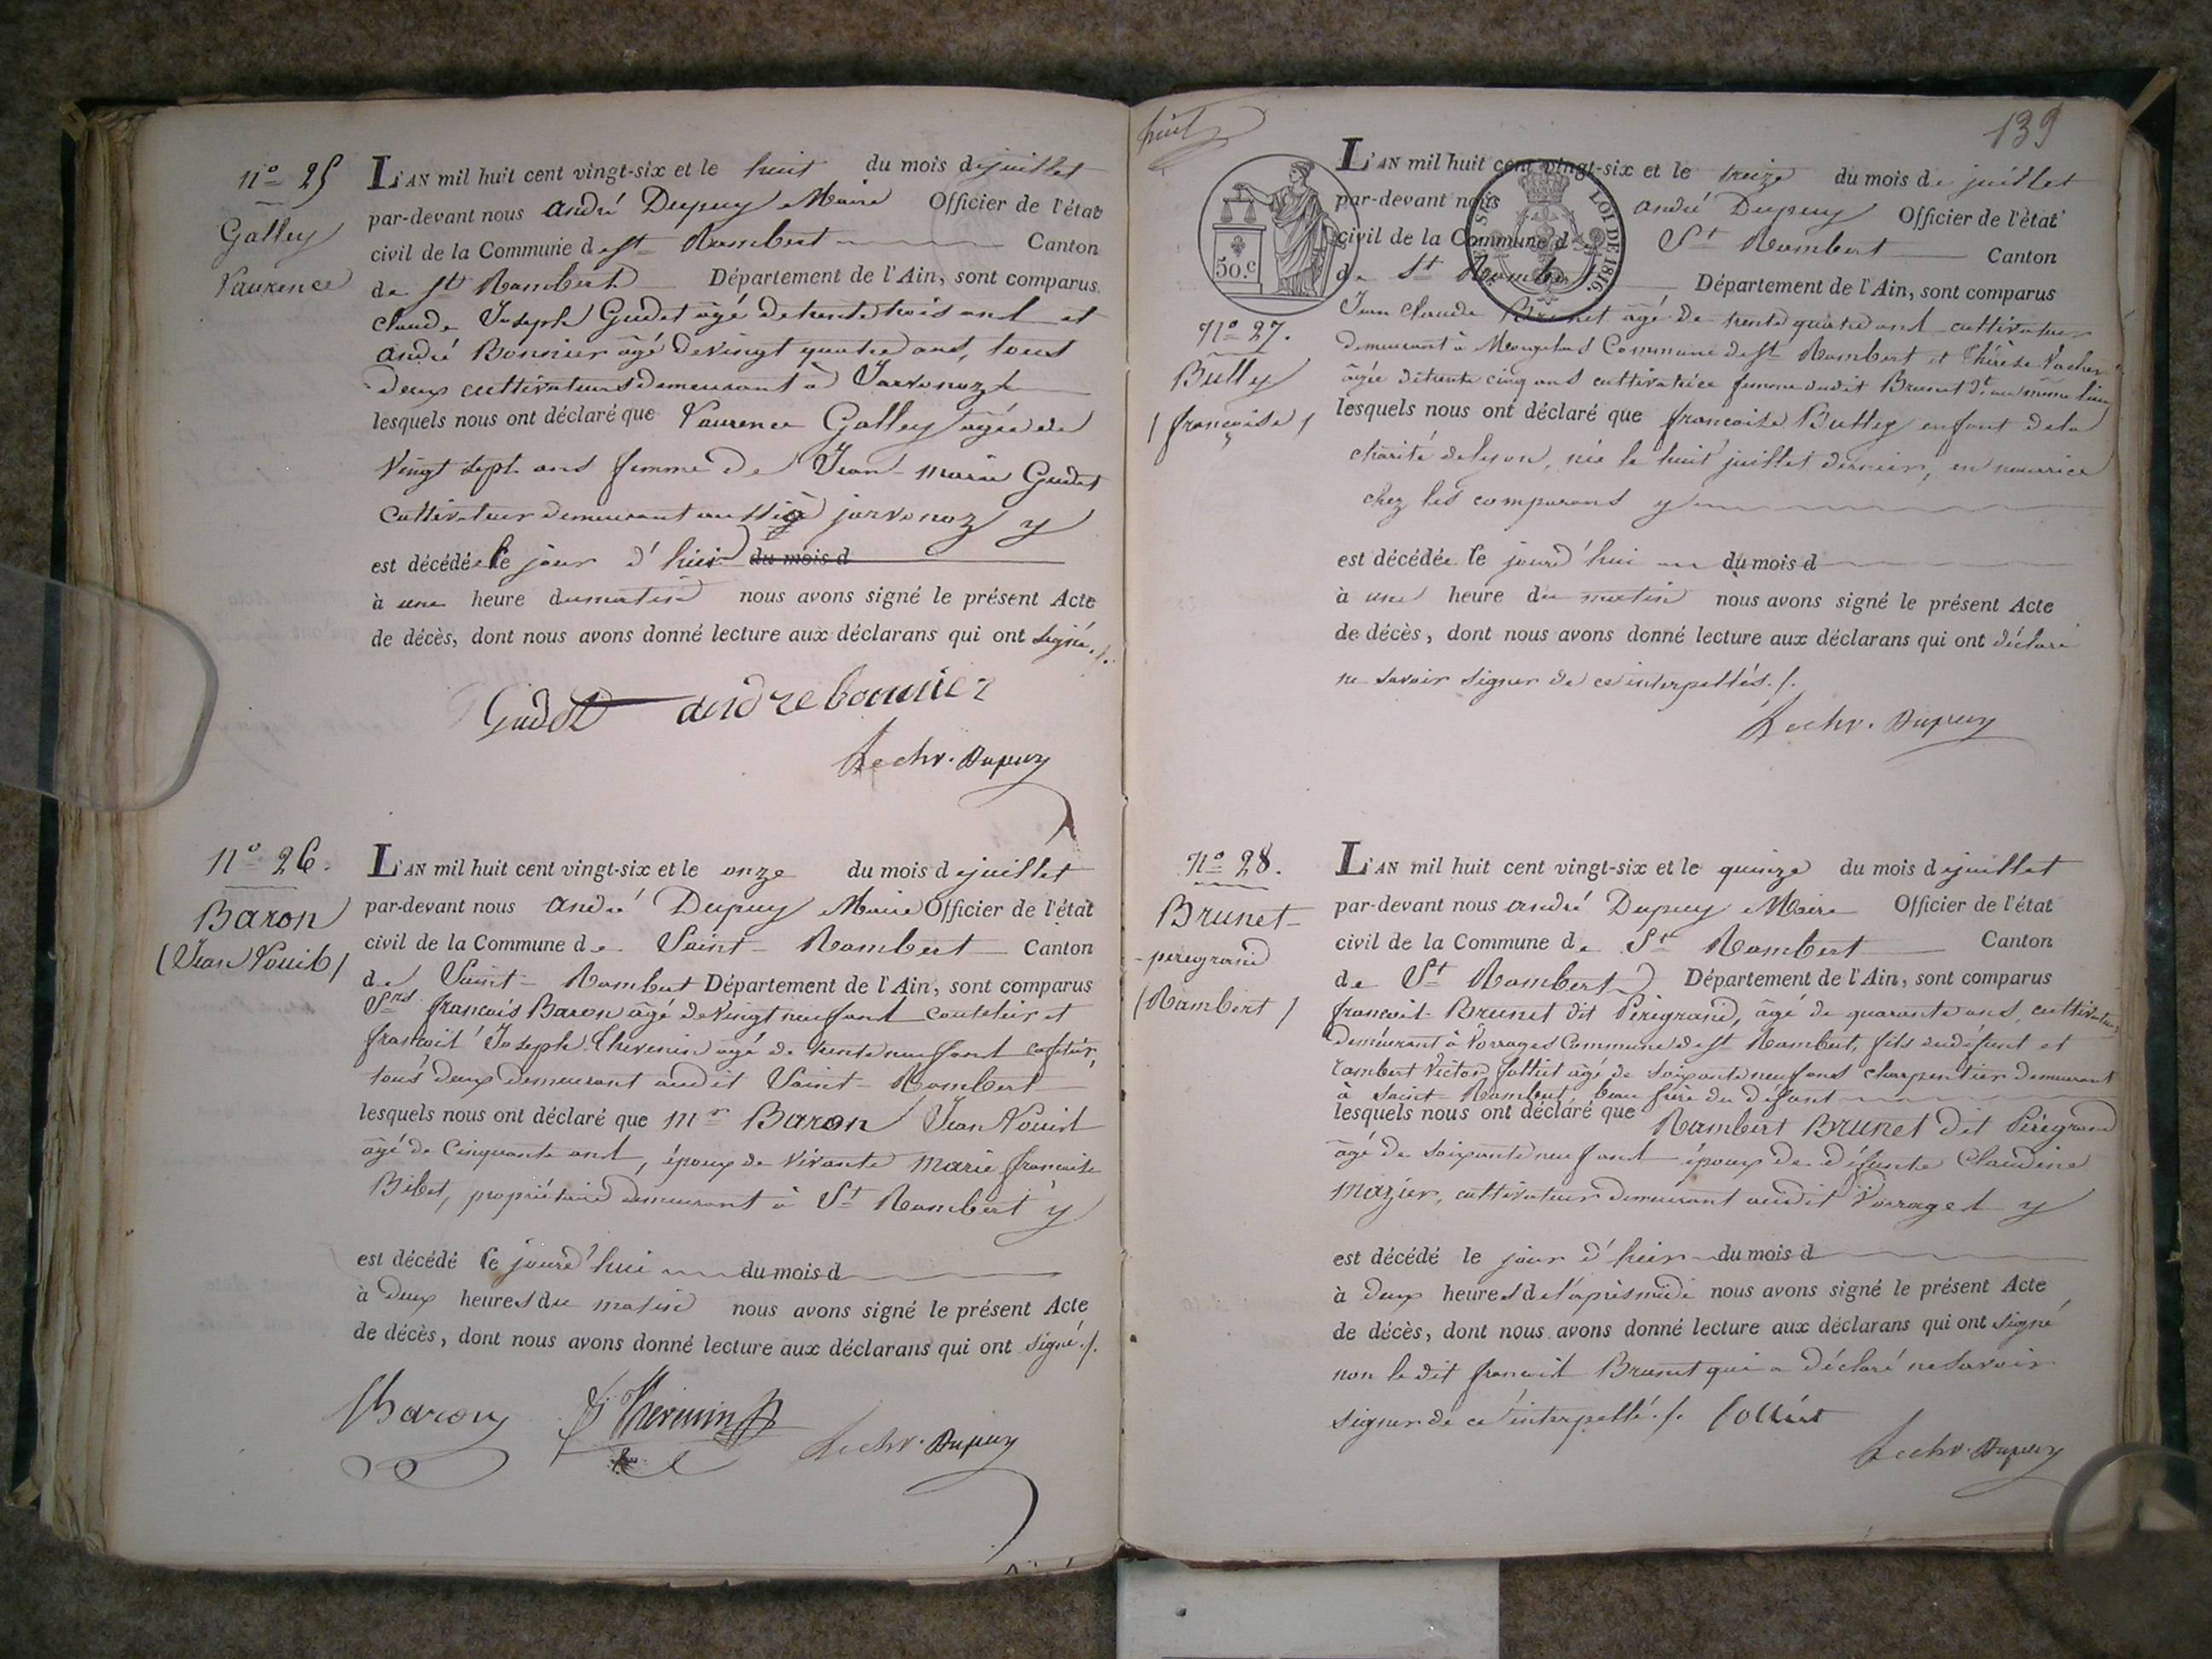 n° 25
Galley
Laurence
L'AN mil huit cent vingt-six et le huit du mois de juillet
par-devant nous andré Dupuy Maire Officier de l'état
civil de la Commune de St Rambert Canton
de St Rambert Département de l'Ain, sont comparus
claude Joseph Gudet âgé de trente trois ans et
andré Bonnier âgé de vingt quatre ans, tous
deux cultivateurs demeurant à Javronoz
lesquels nous ont déclaré que Laurence Galley âgée de
vingt sept ans femme de Jean-marie Gudet
cultivateur demeurant aussi à javronoz y
est décédée le jour d'hier du mois d
à une heure du matin nous avons signé le présent Acte
de décès, dont nous avons donné lecture aux déclarans qui ont signé ./.
Gudet andre bonnier
Le chr. Dupuy
n° 26.
Baron
(Jean Louis)
L'AN mil huit cent vingt-six et le onze du mois de juillet
par-devant nous andré Dupuy Maire Officier de l'état
civil de la Commune de Saint-Rambert Canton
de Saint-Rambert Département de l'Ain, sont comparus
Srs francois Baron âgé de vingt neuf ans coutelier et
francois Joseph Thevenin agé de trente neuf ans
tous deux demeurant audit Saint-Rambert
lesquels nous ont déclaré que Mr Baron Jean Louis
âgé de cinquante ans, époux de vivante Marie francoise
Bibet, propriétaire demeurant à St Rambert y
est décédé le jourd'hui du mois d
à deux heures du matin nous avons signé le présent Acte
de décès, dont nous avons donné lecture aux déclarans qui ont signé ./.
Baron Thevenin Le chr. Dupuy
huit
139
50.c
LOI DE 1816
N° 27.
Bulley
(françoise)
L'AN mil huit cent vingt-six et le treize du mois de juillet
par-devant nous andré Dupuy Officier de l'état
civil de la Commune de St Rambert Canton
de St Rambert Département de l'Ain, sont comparus
Jean Claude Brunet âgé de trente quatre ans cultivateur
demeurant à Commune de St Rambert et Thérèse Vacher
âgée de trente cinq ans cultivatrice femme dudit Brunet dt. au même lieu
lesquels nous ont déclaré que francoise Bulley enfant de la
charité de lyon, née le huit juillet dernier, en nourrice
chez les comparans y
est décédée le jourd'hui du mois d
à une heure du matin nous avons signé le présent Acte
de décès, dont nous avons donné lecture aux déclarans qui ont déclaré
ne savoir signer de ce interpellés ./.
Le chr. Dupuy
N° 28.
Brunet-
peregrand
(Rambert)
L'AN mil huit cent vingt-six et le quinze du mois de juillet
par-devant nous andré Dupuy Maire Officier de l'état
civil de la Commune de St Rambert Canton
de St Rambert Département de l'Ain, sont comparus
francois Brunet dit Pérégrand, âgé de quarante ans cultivateur
demeurant à Vorrages Commune de St Rambert, fils du défunt et
rambert Victor Colliet agé de soixante neuf ans charpentier demeurant
à Saint-Rambert, beau frère du défunt
lesquels nous ont déclaré que Rambert Brunet dit Pérégrand
âgé de soixante neuf ans époux de défunte Claudine
Mazier, cultivateur demeurant audit Vorrages y
est décédé le jour d'hier du mois d
à deux heures de l'après midi nous avons signé le présent Acte
de décès, dont nous avons donné lecture aux déclarans qui ont signé
non le dit francois Brunet qui a déclaré ne savoir
signer de ce interpellé ./. Colliet
Le chr. Dupuy